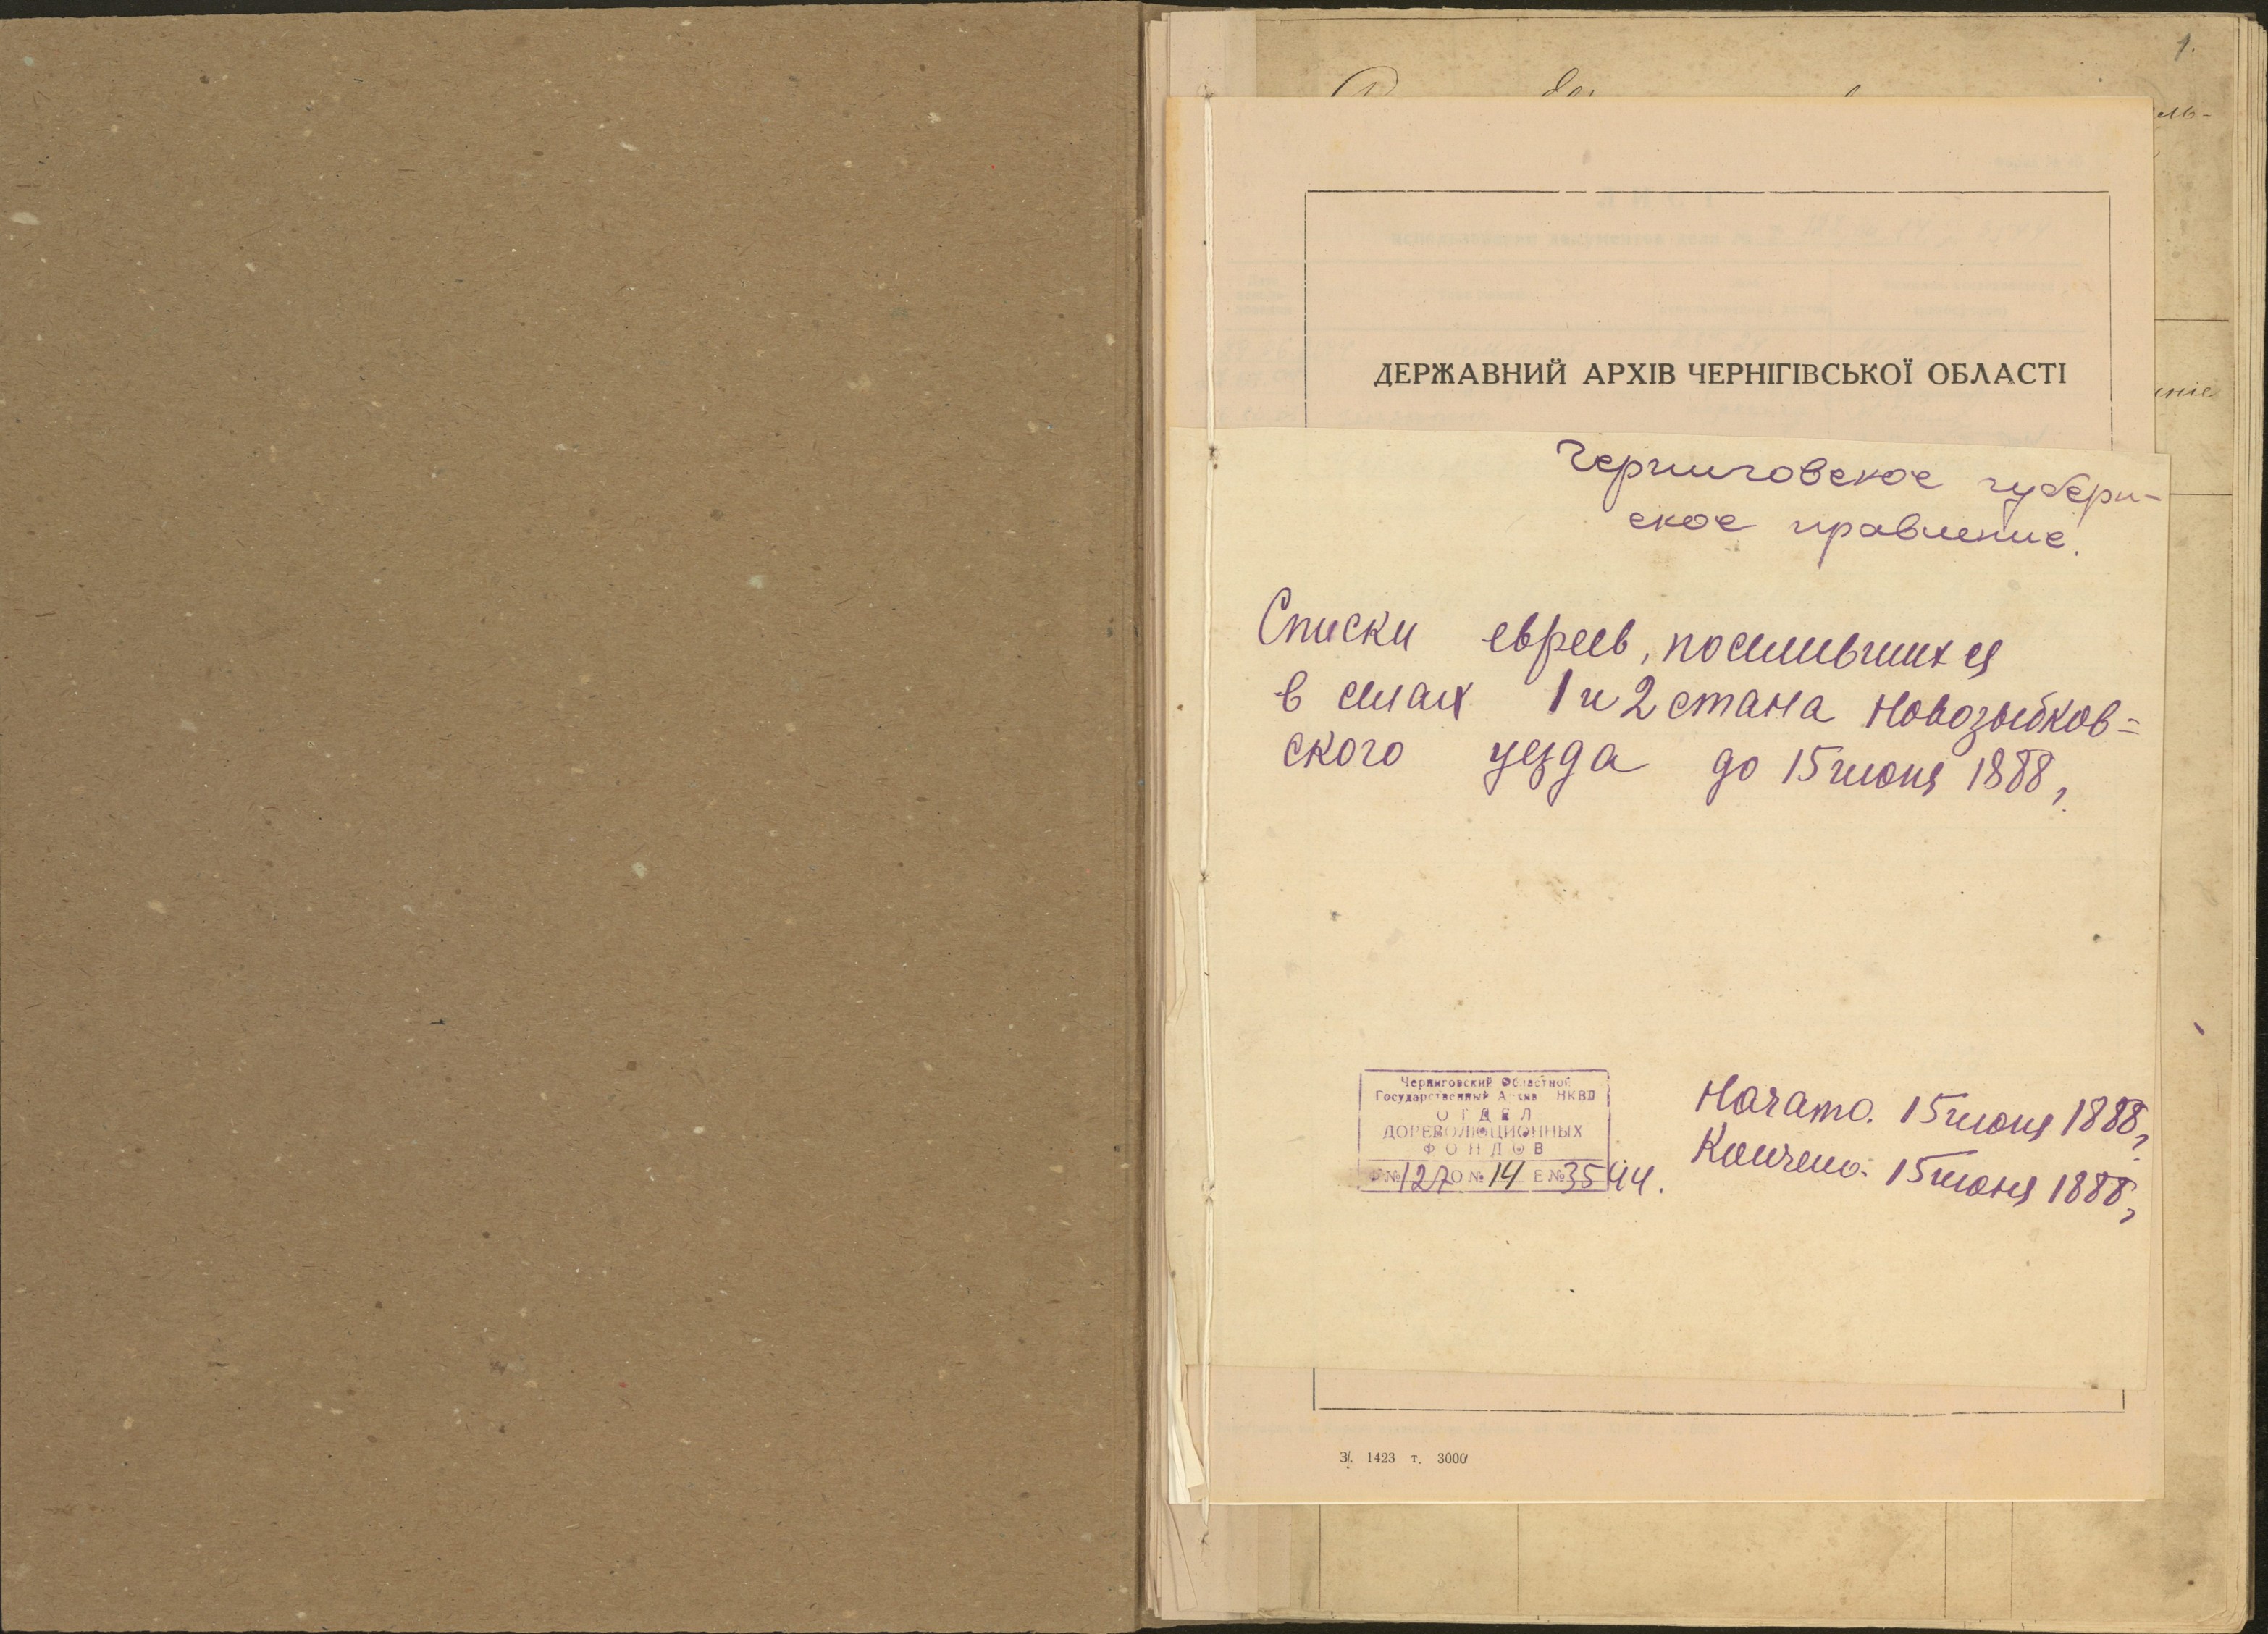 1.
ль-
ДЕРЖАВНИЙ АРХІВ ЧЕРНІГІВСЬКОЇ ОБЛАСТІ
ние
Черниговское губерн-
ское правление.
Списки евреев, поселившихся
в селах 1 и 2 стана Новозыбков=
ского уезда до 15 июня 1888 г.
Черниговский Областной
Государственный Архив НКВД
ОТДЕЛ
ДОРЕВОЛЮЦИОННЫХ
ФОНДОВ
Ф № 127 О № 14 Е № 3544.
Начато. 15 июня 1888 г.
Кончено. 15 июня 1888 г.
З. 1423 т. 3000